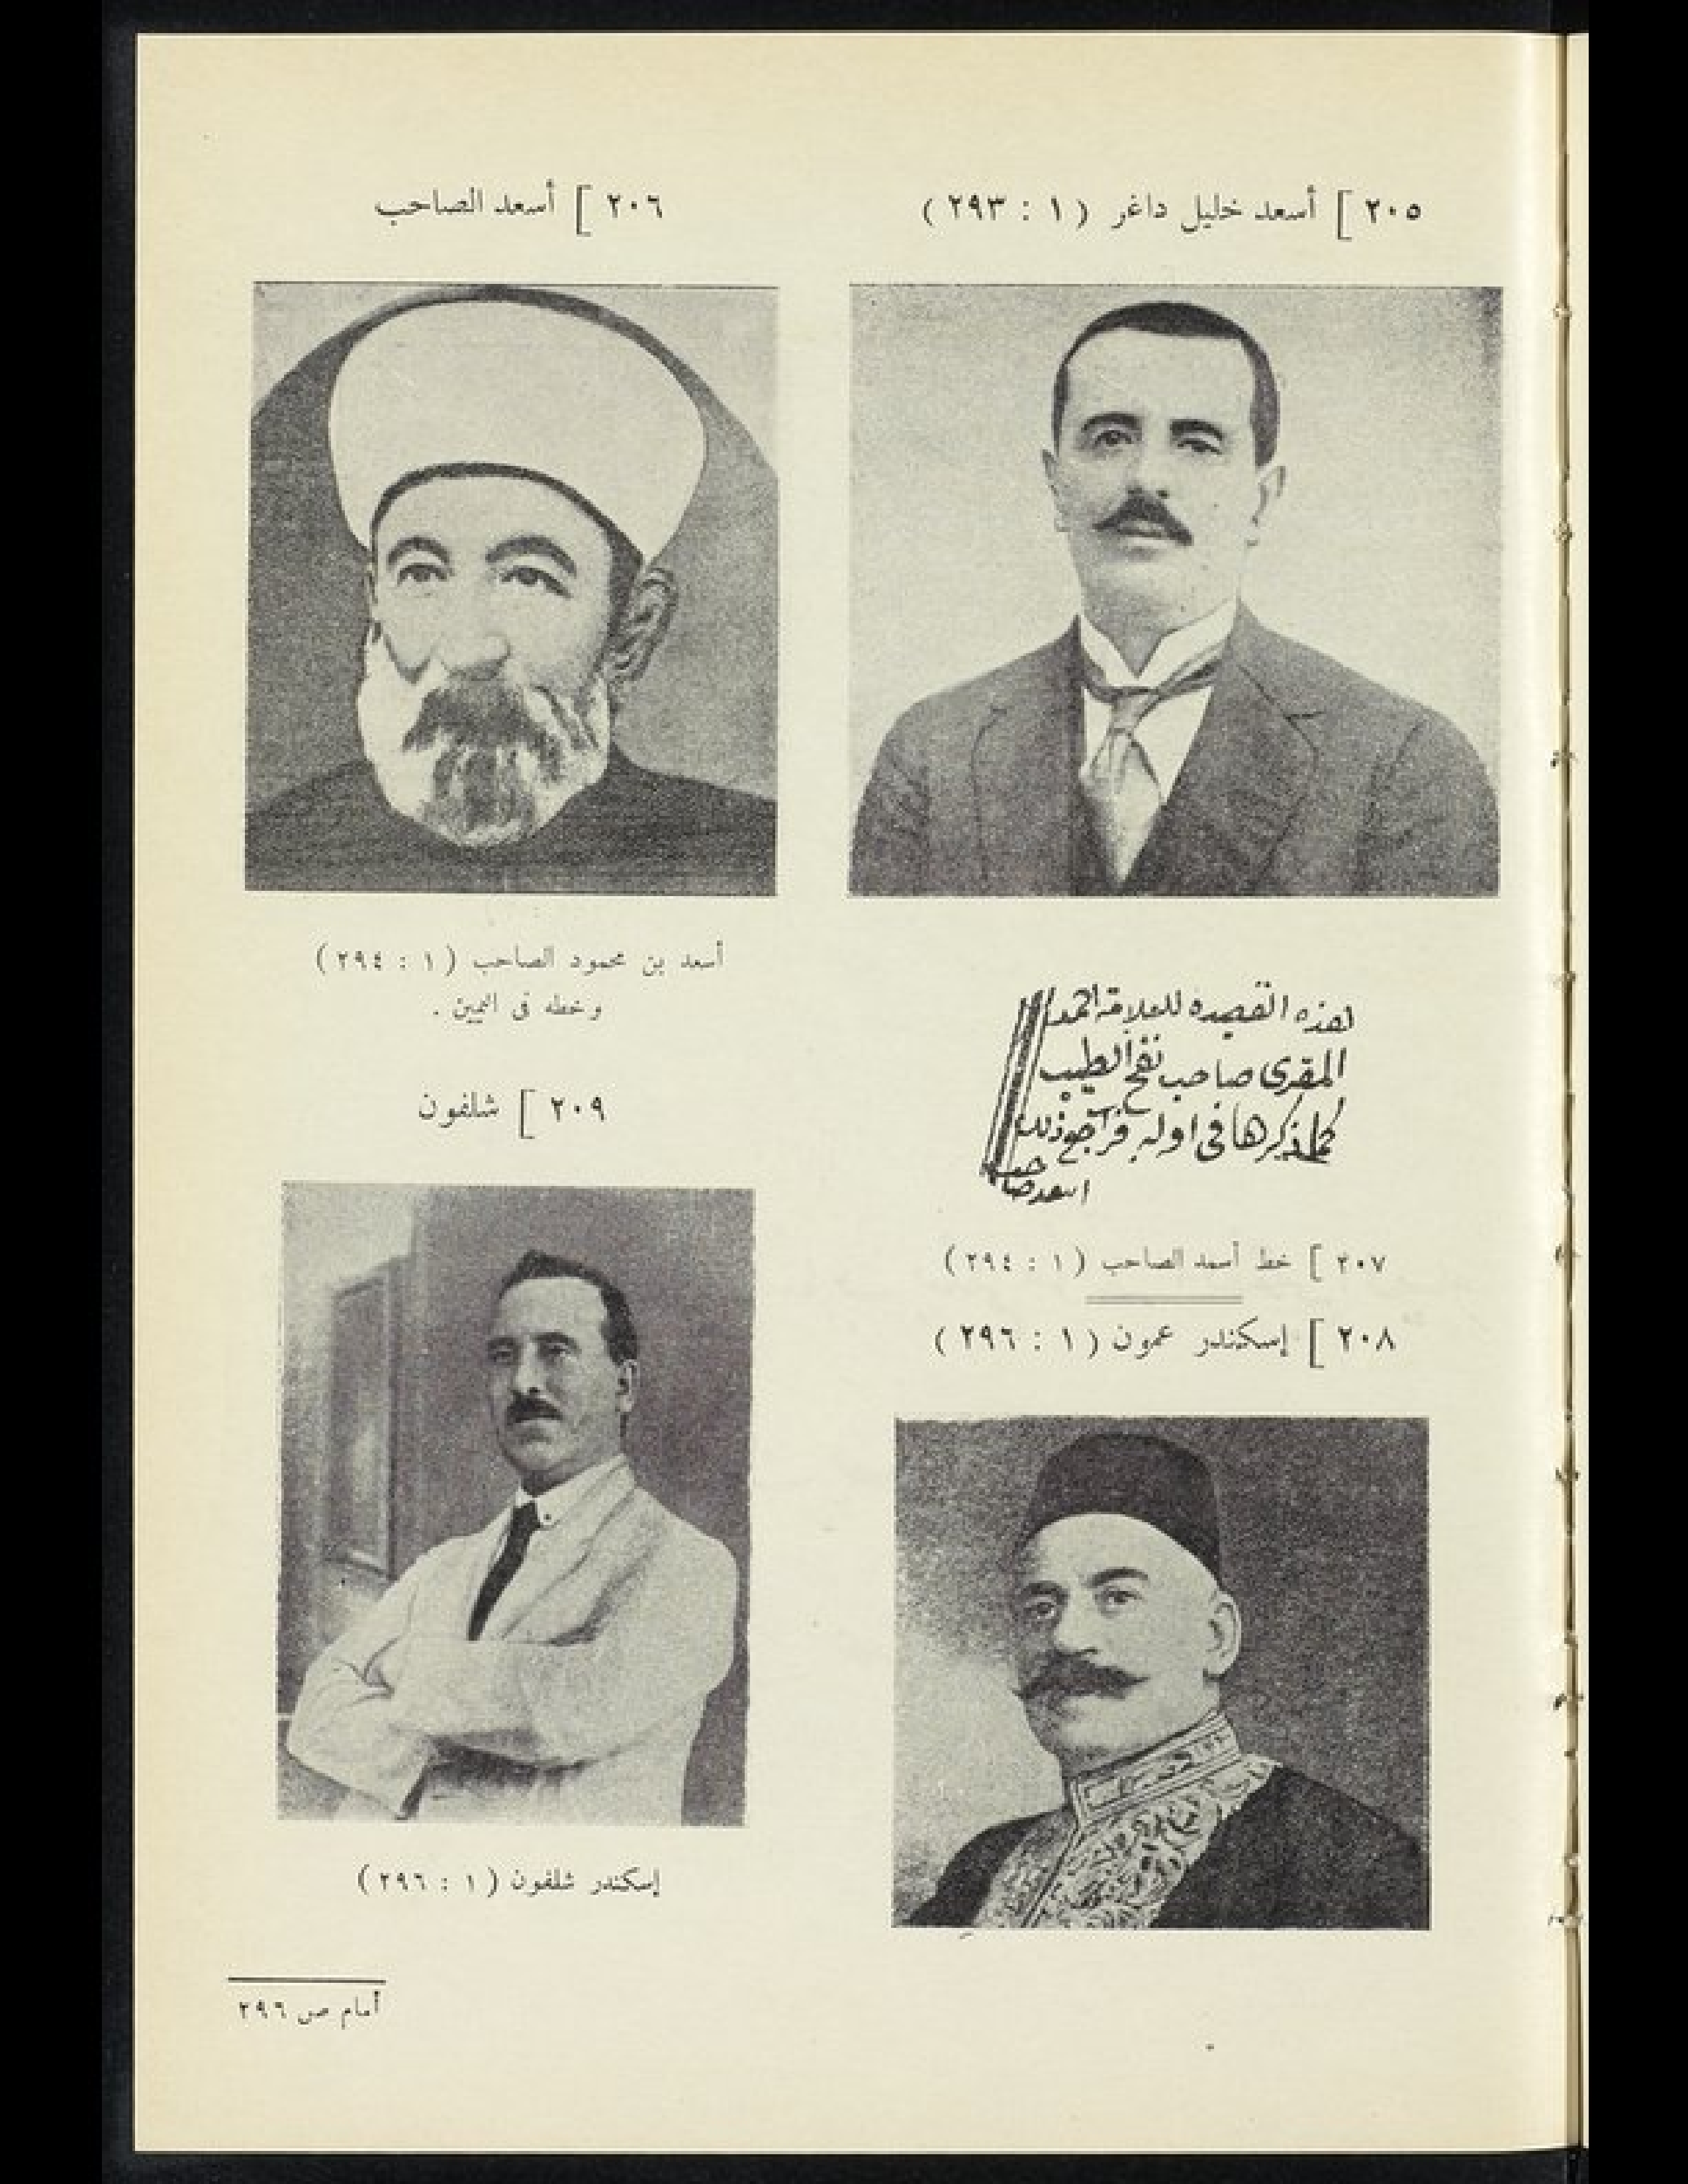 ٢٠٥ ] أسعد خليل داغر ( ١ : ٢٩٣ )
٢٠٦ ] أسعد الصاحب
أسعد بن محمود الصاحب ( ١ : ٢٩٤ )
وخطه في اليمين .
هذه القصيدة للعلامة احمد
المقري صاحب نفح الطيب
كما ذكرها في اوله فراجع ذلك
اسعد صاحب
٢٠٧ ] خط أسعد الصاحب ( ١ : ٢٩٤ )
٢٠٨ ] إسكندر عمون ( ١ : ٢٩٦ )
٢٠٩ ] شلفون
إسكندر شلفون ( ١ : ٢٩٦ )
أمام ص ٢٩٦